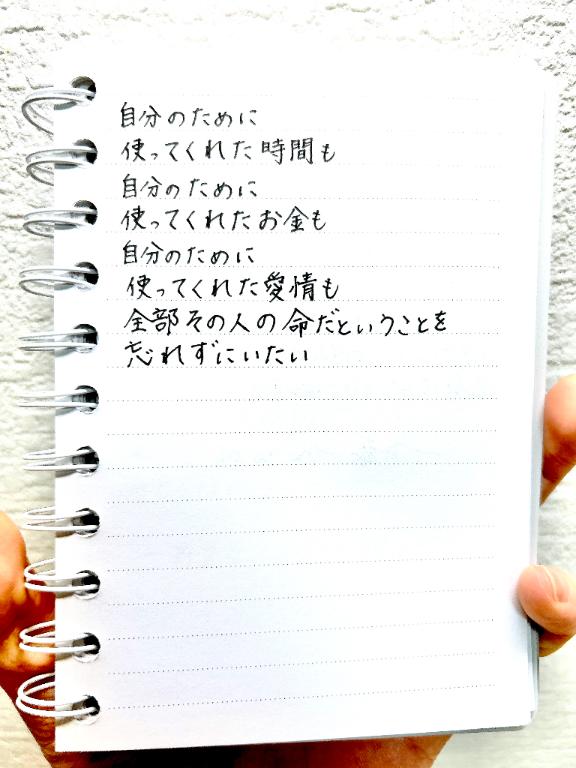 自分のために
使ってくれた時間も
自分のために
使ってくれたお金も
自分のために
使ってくれた愛情も
全部その人の命だということを
忘れずにいたい